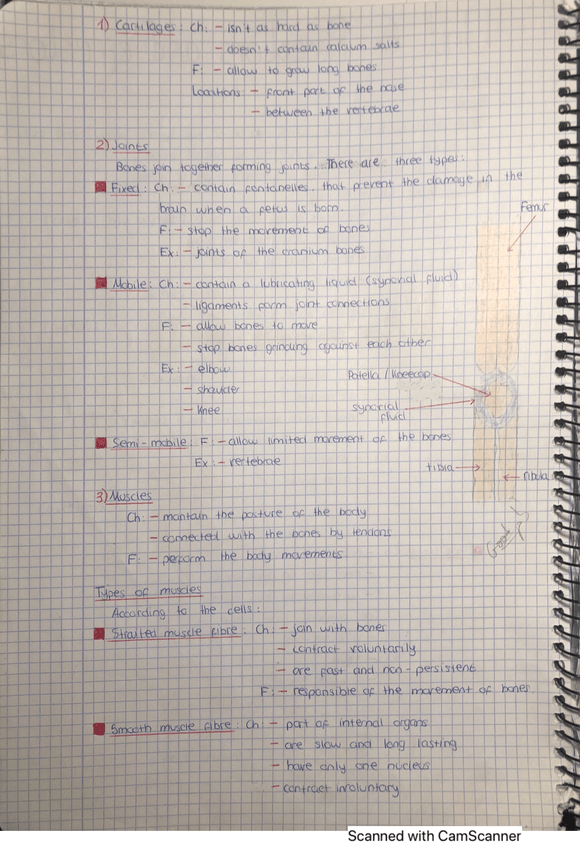 1) Cartilages: Ch: - isn't as hard as bone
- doesn't contain calcium salts
F: - allow to grow long bones
Locations - front part of the nose
- between the vertebrae
2) Joints
Bones join together forming joints. There are three types:
Fixed: Ch: - contain fontanelles that prevent the damage in the
brain when a fetus is born.
F: - stop the movement of bones
Ex: - joints of the cranium bones
Femur
Mobile: Ch: - contain a lubricating liquid (synovial fluid)
- ligaments form joint connections
F: - allow bones to move
- stop bones grinding against each other
Ex: - elbow
- shoulder
- knee
Patella / Kneecap
synovial
fluid
Semi-mobile: F: - allow limited movement of the bones
Ex: - vertebrae
tibia
fibula
3) Muscles
Ch: - mantain the posture of the body
- connected with the bones by tendons
F: - perform the body movements
Good
Types of muscles
According to the cells:
Straited muscle fibre: Ch: - join with bones
- contract voluntarily
- are fast and non-persistent
F: - responsible of the movement of bones
Smooth muscle fibre: Ch: - part of internal organs
- are slow and long lasting
- have only one nucleus
- contract involuntary
Scanned with CamScanner